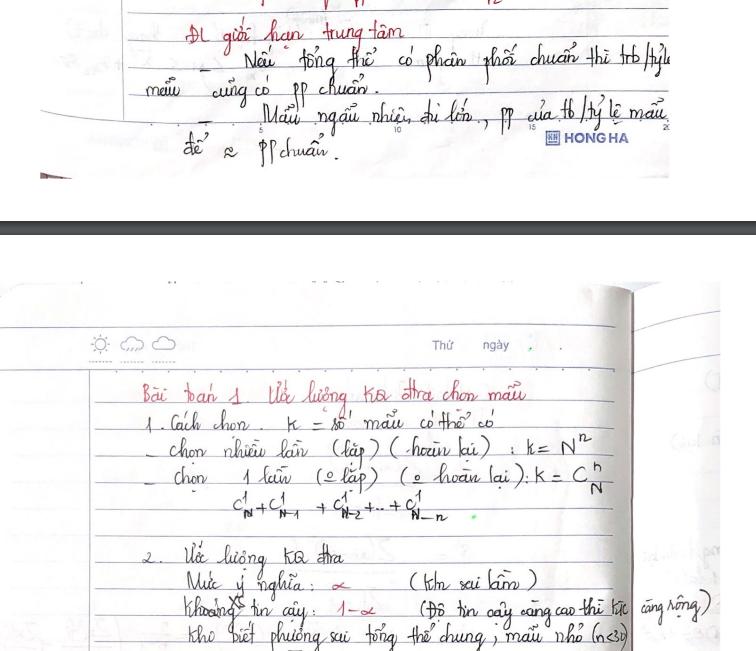 ĐL giới hạn trung tâm
- Nếu tổng thể có phân phối chuẩn thì trb/tỷ lệ
mẫu cũng có pp chuẩn.
- Mẫu ngẫu nhiên, đủ lớn, pp của tb/tỷ lệ mẫu
để ≈ PP chuẩn.
5 10 15 20
HONG HA
Thứ ngày
Bài toán 1. Ước lượng KQ đtra chọn mẫu
1. Cách chọn. K = số mẫu có thể có
- chọn nhiều lần (lặp) (hoàn lại) : k = N^n
- chọn 1 lần (o lặp) (o hoàn lại): K = C_N^n
C_N^1 + C_{N-1}^1 + C_{N-2}^1 + .. + C_{N-n}^1
2. Ước lượng KQ đtra
Mức ý nghĩa : α (Khn sai lầm)
Khoảng tin cậy : 1-α (Độ tin cậy càng cao thì càng rộng)
Kho biết phương sai tổng thể chung, mẫu nhỏ (n<30)